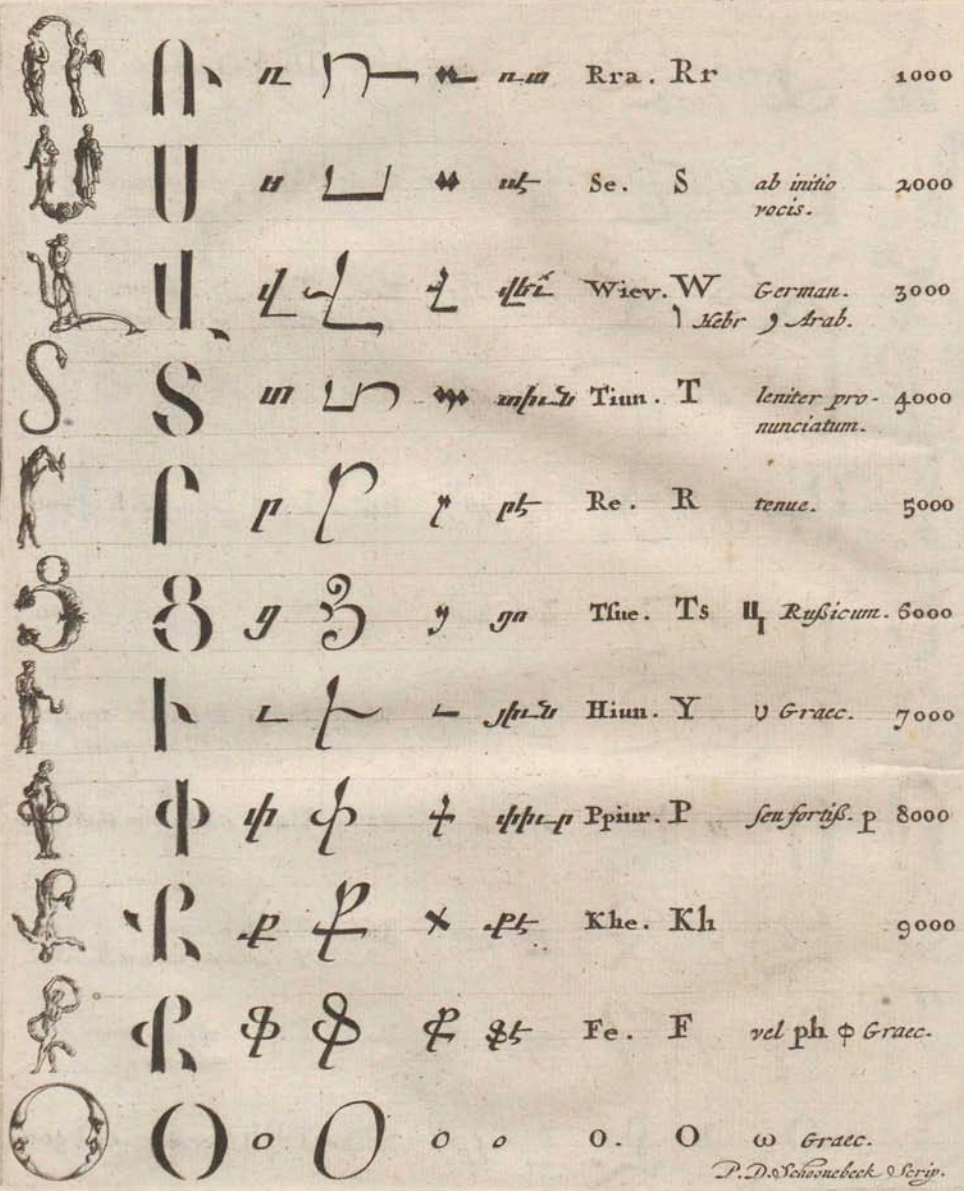 Ռ Ռ ռ Ռ ռ ռա Rra. Rr 1000
Ս Ս ս Ս ս սէ Se. S ab initio 2000
vocis.
Վ Վ վ Վ վ Wiev. W German. 3000
ו Hebr و Arab.
Տ Տ տ Տ տ տիւն Tiun. T leniter pro- 4000
nunciatum.
Ր Ր ր Ր ր րէ Re. R tenue. 5000
Ց Ց ց Ց ց ցո Tſue. Ts ц Rußicum. 6000
Ւ Ւ ւ Ւ ւ յիւն Hiun. Y υ Graec. 7000
Փ Փ փ Փ փ փիւր Ppiur. P ſeu fortiß. p 8000
Ք Ք ք Ք ք քէ Khe. Kh 9000
Ֆ Ֆ ֆ Ֆ ֆ ֆէ Fe. F vel ph φ Graec.
Օ Օ օ Օ օ օ O. O ω Graec.
P. D. Schoonebeck Scrip.